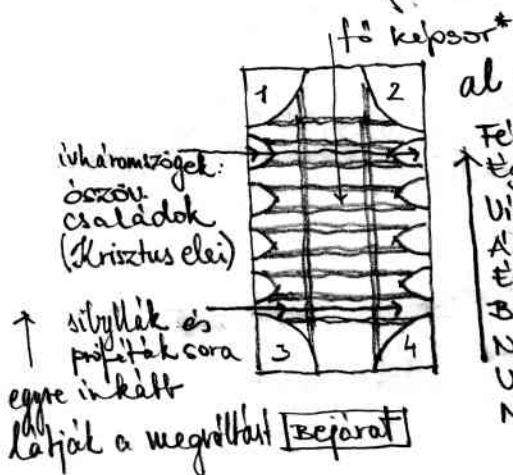 fő képsor*
1 2
al
ívháromszögek:
ószöv.
családok
(Krisztus elei)
sibyllák és
próféták sora
3 4
egyre inkább
látják a megváltást
Bejárat